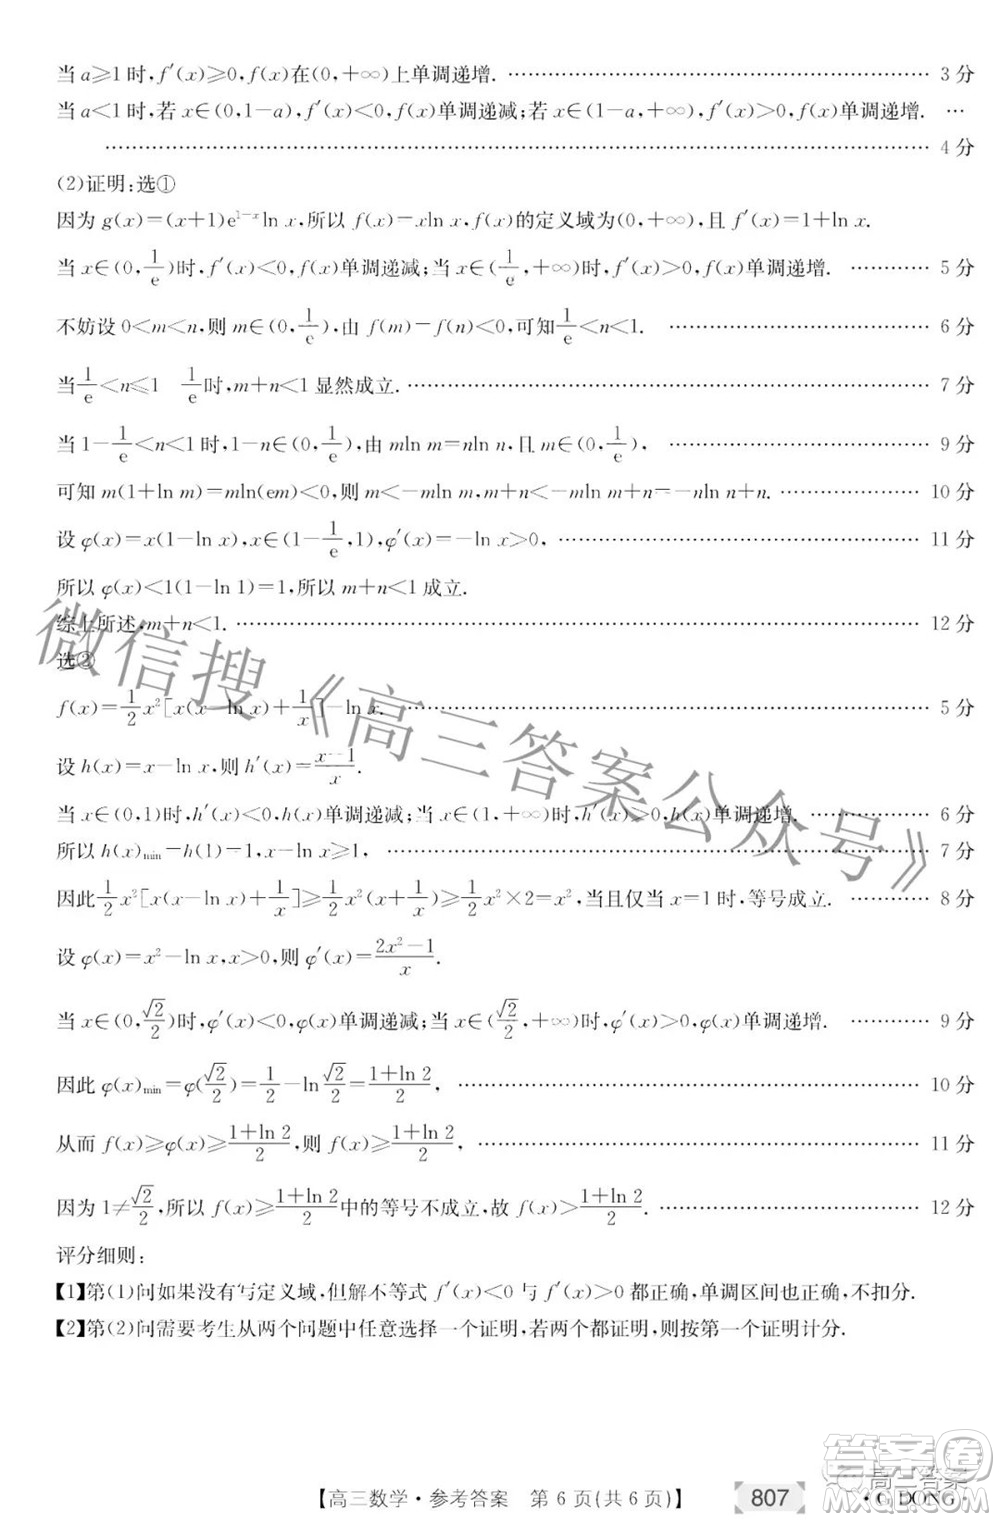 当 a⩾1 时,f′(x)⩾0,f(x)在(0,+∞)上单调递增. …………………… 3 分
当 a<1 时,若 x∈(0,1−a),f′(x)<0,f(x)单调递减;若 x∈(1−a,+∞),f′(x)>0,f(x)单调递增. …
…………………… 4 分
(2)证明:选①
因为 g(x)=(x+1)e^{1−x}ln x,所以 f(x)=xln x,f(x)的定义域为(0,+∞),且 f′(x)=1+ln x.
当 x∈(0,1/e)时,f′(x)<0,f(x)单调递减;当 x∈(1/e,+∞)时,f′(x)>0,f(x)单调递增. ………… 5 分
不妨设 0<m<n,则 m∈(0,1/e),由 f(m)=f(n)<0,可知1/e<n<1. …………………… 6 分
当1/e<n⩽1 1/e时,m+n<1 显然成立. …………………… 7 分
当 1−1/e<n<1 时,1−n∈(0,1/e),由 mln m=nln n,m∈(0,1/e), …………………… 9 分
可知 m(1+ln m)=mln(em)<0,则 m<−mln m,m+n<−mln m+n=−nln n+n. …………………… 10 分
设 φ(x)=x(1−ln x),x∈(1−1/e,1),φ′(x)=−ln x>0, …………………… 11 分
所以 φ(x)<1(1−ln 1)=1,所以 m+n<1 成立.
综上所述,m+n<1. …………………… 12 分
选②
f(x)=1/2 x²[x(x−ln x)+1/x]−ln x. …………………… 5 分
设 h(x)=x−ln x,则 h′(x)=(x−1)/x.
当 x∈(0,1)时,h′(x)<0,h(x)单调递减;当 x∈(1,+∞)时,h′(x)>0,h(x)单调递增. ………… 6 分
所以 h(x)min=h(1)=1,x−ln x⩾1, …………………… 7 分
因此1/2 x²[x(x−ln x)+1/x]⩾1/2 x²(x+1/x)⩾1/2 x²×2=x²,当且仅当 x=1 时,等号成立. ………… 8 分
设 φ(x)=x²−ln x,x>0,则 φ′(x)=(2x²−1)/x.
当 x∈(0,√2/2)时,φ′(x)<0,φ(x)单调递减;当 x∈(√2/2,+∞)时,φ′(x)>0,φ(x)单调递增. ………… 9 分
因此 φ(x)min=φ(√2/2)=1/2−ln√2/2=(1+ln 2)/2, …………………… 10 分
从而 f(x)⩾φ(x)⩾(1+ln 2)/2,则 f(x)⩾(1+ln 2)/2, …………………… 11 分
因为 1≠√2/2,所以 f(x)⩾(1+ln 2)/2中的等号不成立,故 f(x)>(1+ln 2)/2. …………………… 12 分
评分细则:
【1】第(1)问如果没有写定义域,但解不等式 f′(x)<0 与 f′(x)>0 都正确,单调区间也正确,不扣分.
【2】第(2)问需要考生从两个问题中任意选择一个证明,若两个都证明,则按第一个证明计分.
【高三数学·参考答案 第 6 页(共 6 页)】 807 ·G DONG·
微信搜《高三答案公众号》
高三答案
答案圈
MXQE.COM